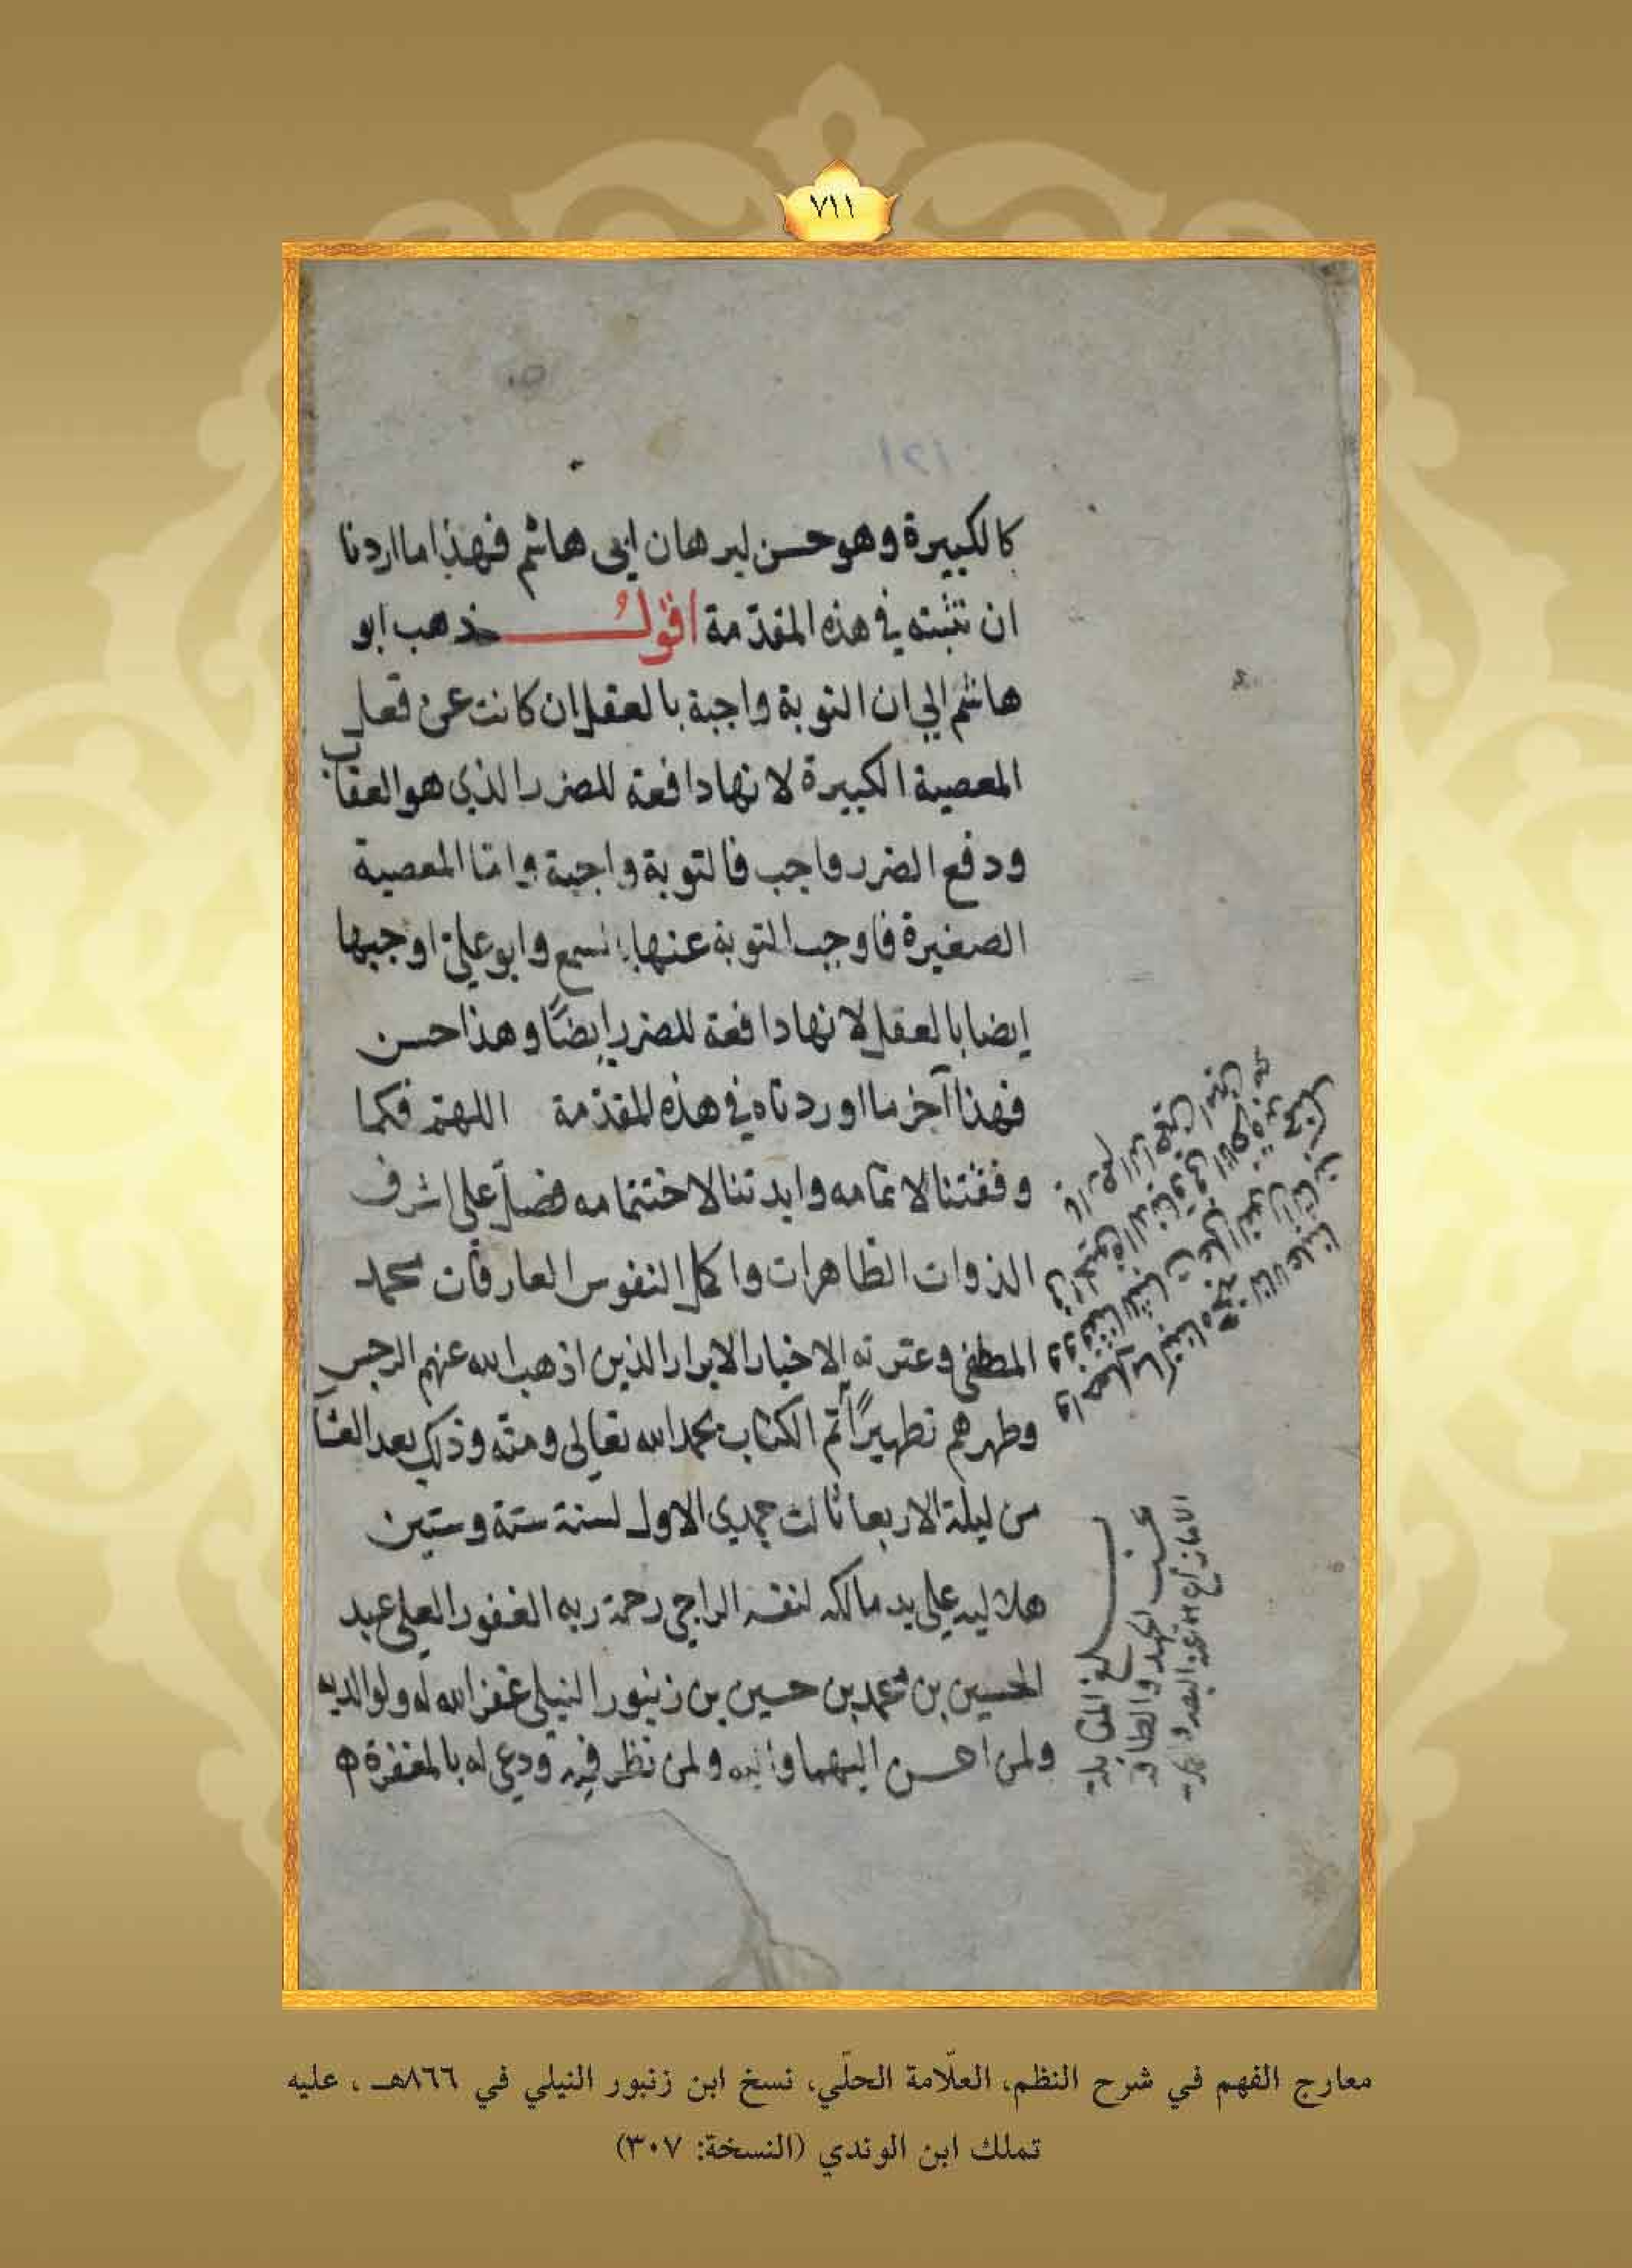 ٧١١
١٢١
كالكبيرة وهو حسن لبرهان ابى هاشم فهذا ما اردنا
ان نثبته في هذه المقدّمة اقولُ ذهب ابو
هاشم الي ان التوبة واجبة بالعقل ان كانت عن فعل
المعصية الكبيرة لانها دافعة للضرر الذي هو العقاب
ودفع الضرر واجب فالتوبة واجبة وامّا المعصية
الصغيرة فاوجب التوبة عنها بالسمع وابو علي اوجبها
ايضا بالعقل لانها دافعة للضرر ايضًا وهذا حسن
فهذا آخر ما اوردناه في هذه المقدّمة اللهمّ فكما
وفقتنا لاتمامه وايدتنا لاختتامه فصلّ علي اشرف
الذوات الطاهرات واكمل النفوس العارفات محمد
المصطفى وعترته الاخيار الابرار الذين اذهب الله عنهم الرجس
وطهرهم تطهيرًا تم الكتاب بحمد الله تعالى ومنّه وذلك بعد العشا
من ليلة الاربعا ثالث جمدي الاول لسنة ستة وستين
هلاليه علي يد مالكه لنفسه الراجي رحمة ربه الغفور العلي عبد
الحسين بن محمد بن حسين بن زنبور النيلي غفر الله له ولوالديه
ولمن احسن اليهما واليه ولمن نظر فيه ودعى له بالمغفرة
معارج الفهم في شرح النظم، العلّامة الحلّي، نسخ ابن زنبور النيلي في ٨٦٦هـ ، عليه
تملك ابن الوندي (النسخة: ٣٠٧)